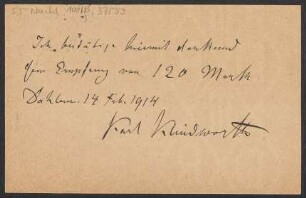 Ich bestätige hiermit dankend
den Empfang von 120 Mark
Dahlem. 14 Feb. 1914
Karl Klindworth